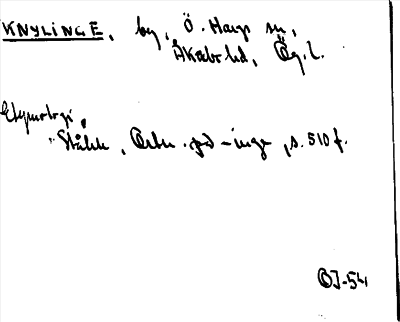 KNYLINGE, by, Ö. Hargs sn,
Åkerbo hd, Ög. l.
Etymologi,
Ståhle, Ortn. på -inge, s. 510 f.
OJ-54